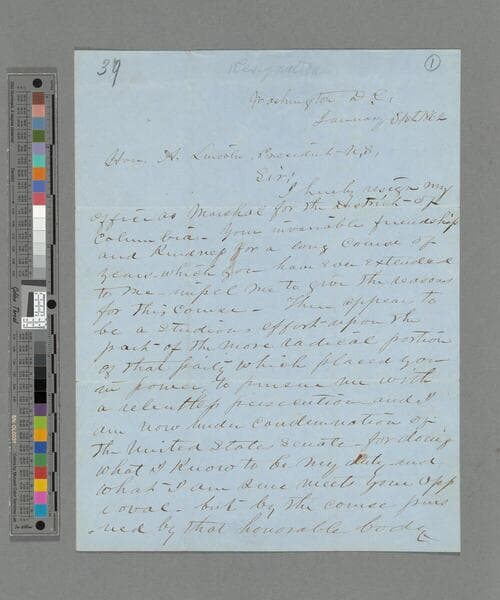 39
Resignation
1
Washington D.C.
January
Hon. A. Lincoln, President U.S.
Sir,
I hereby resign my
office as Marshal for the District of
Columbia - Your invariable friendship
and Kindness for a long course of
years which you have ever extended
to me impel me to give the reasons
for this course - There appears to
be a studious effort upon the
part of the more radical portion
of that party which placed you
in power, to pursue me with
a relentless persecution and I
am now under condemnation of
the United States Senate - for doing
what I know to be my duty and
what I am sure meets your app
roval - but by the course purs
-ued by that honorable body